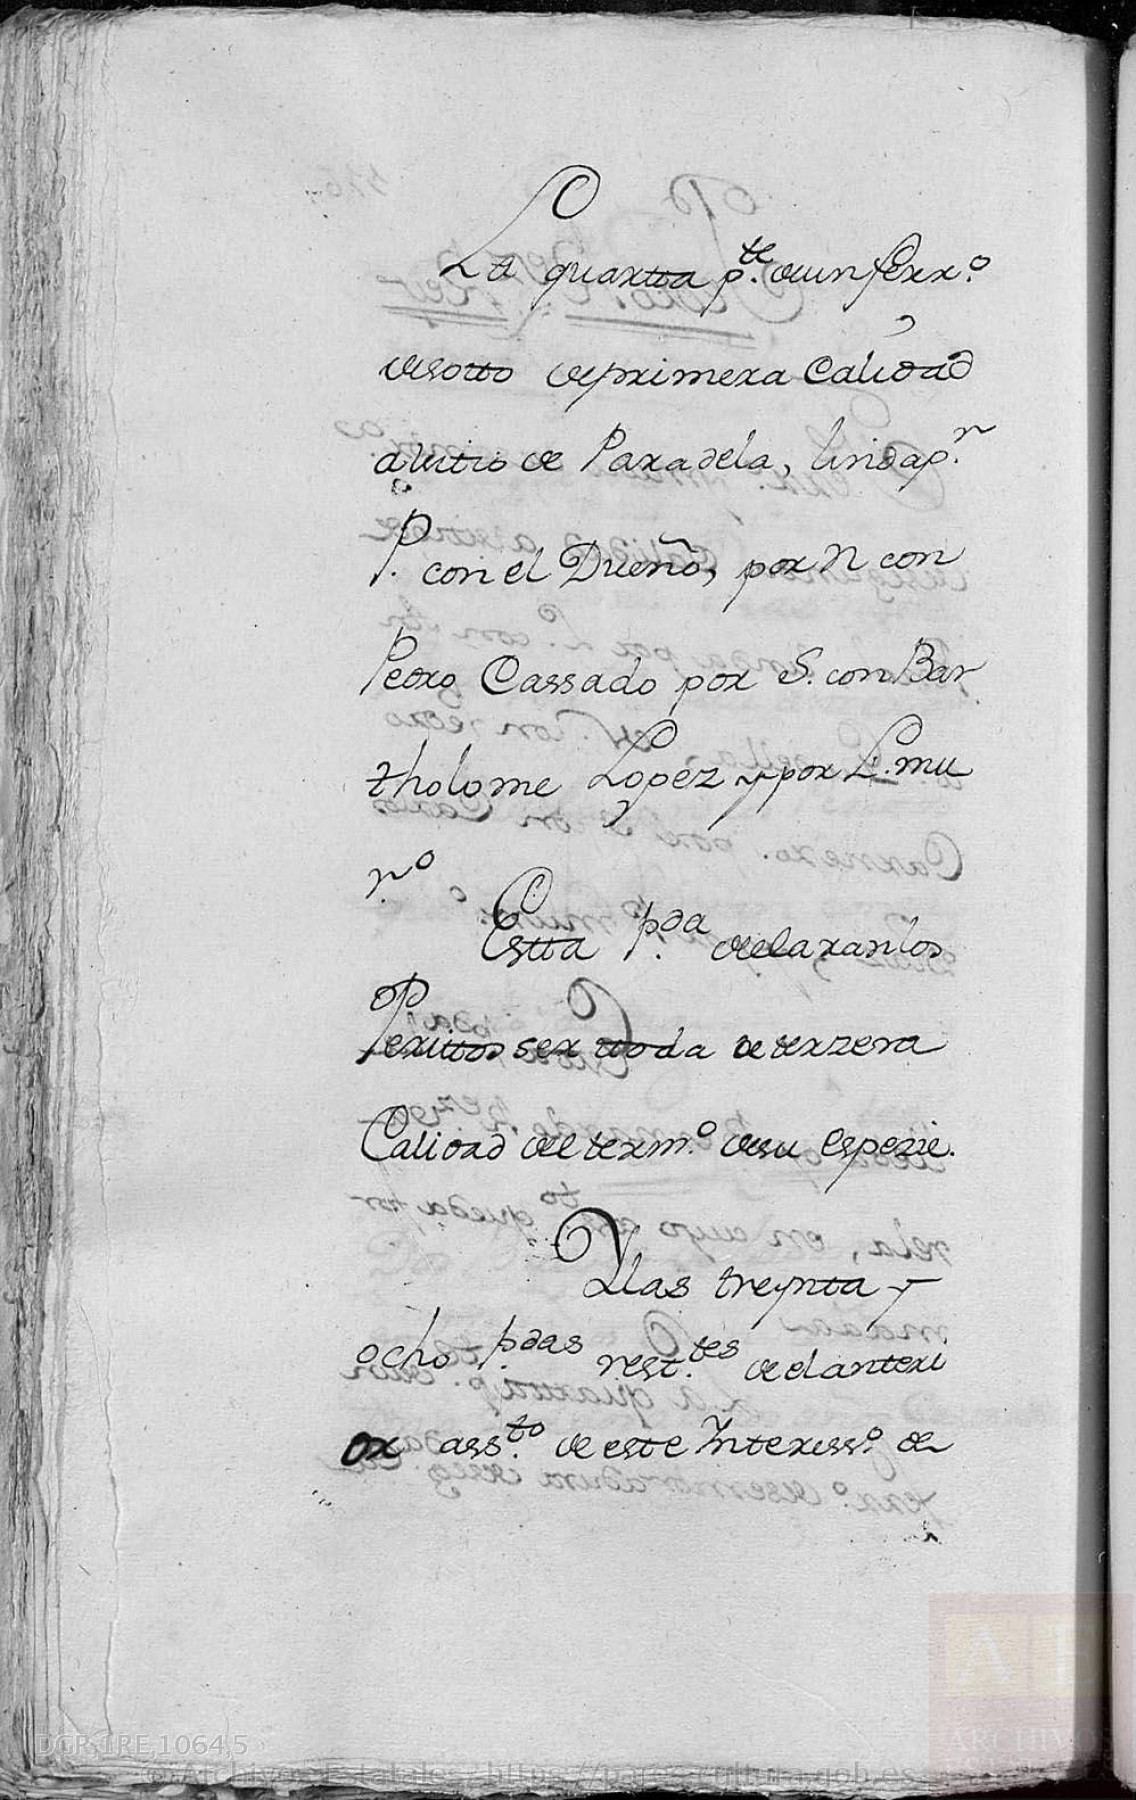 La quartta p.te de un ferr.o
de sotto de primera Calidad
al sitio de Paradela, linda p.r
P. con el Dueño, por N con
Pedro Cassado por S. con Bar
tholome Lopez y por L. mu
r.o
Estta p.da declaran los
Peritos ser ttoda de terzera
Calidad del term.o de su espezie.
Y las treynta y
ocho p.das rest.tes de el anteri
or ass.to de este Interess.o de
DGR,1RE,1064,5
© Archivos Estatales, https://pares.cultura.gob.es
AE
ARCHIVOS